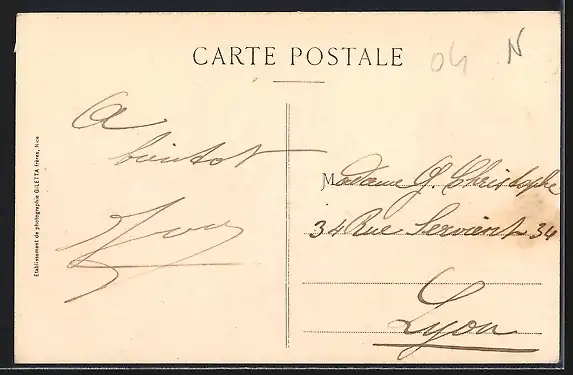 CARTE POSTALE
04 N
A
bientot
Etablissement de photographie GILETTA frères, Nice
Madame G. Christophe
34 Rue Servient 34
Lyon